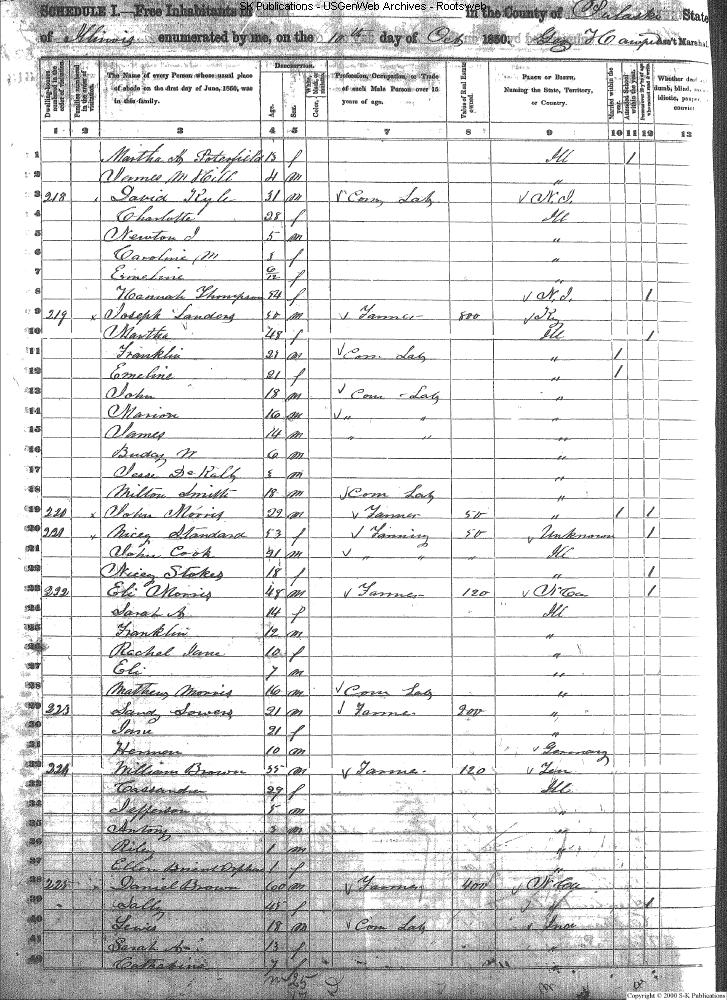 S-K Publications - USGenWeb Archives - Rootsweb
SCHEDULE I.—Free Inhabitants in in the County of Pulaski State
of Illinois enumerated by me, on the 10th day of Oct 1850. Ass't Marshal
Dwelling-houses numbered in the order of visitation.
Families numbered in the order of visitation.
The Name of every Person whose usual place of abode on the first day of June, 1850, was in this family.
DESCRIPTION.
Age.
Sex.
Color, White, black, or mulatto.
Profession, Occupation, or Trade of each Male Person over 15 years of age.
Value of Real Estate owned.
PLACE OF BIRTH. Naming the State, Territory, or Country.
Married within the year.
Attended School within the year.
Whether deaf dumb, blind,
1 2 3 4 5 6 7 8 9 10 11 12 13
1 Martha A Porterfield 13 f Ill 1
2 James M Hill 4 m "
3 218 David Kyle 31 m Com Lab N.J.
4 Charlotte 28 f Ill
5 Newton J 5 m "
6 Caroline M 3 f "
7 Emeline 6/12 f "
8 Hannah Thompson 54 f N.J. 1
9 219 Joseph Landers 50 m Farmer 800 Ky
10 Martha 48 f Ill 1
11 Franklin 21 m Com Lab " 1
12 Emeline 21 f " 1
13 John 18 m Com Lab "
14 Marion 16 m " " "
15 James 14 m " " "
16 W 6 m "
17 Jesse DeKalb 3 m "
18 Milton Smith 18 m Com Lab "
19 220 John Morris 29 m Farmer 50 " 1 1
20 221 Nicey Standard 53 f Farming 50 Unknown 1
21 John Cook 21 m " " " Ill
22 Nicey Stokes 18 f " 1
23 222 Eli Morris 48 m Farmer 120 N Ca 1
24 Sarah A 14 f Ill
25 Franklin 12 m "
26 Rachel Jane 10 f "
27 Eli 7 m "
28 Mathew Morris 16 m Com Lab "
29 223 Sandy Sowers 21 m Farmer 200 "
30 Jane 21 f "
31 Hermon 10 m Germany
32 224 William Brown 35 m Farmer 120 Ten
33 Cassander 29 f Ill
34 Jefferson 5 m "
35 Antony 3 m "
36 Riley 1 m "
37 Ellen Briant Orphan 1 f "
38 225 Daniel Brown 60 m Farmer 400 N Ca
39 Sally 45 f " 1
40 Lewis 18 m Com Lab Inda
41 Sarah A 13 f "
42 Catharine 7 f "
m 25
Copyright © 2000 S-K Publications